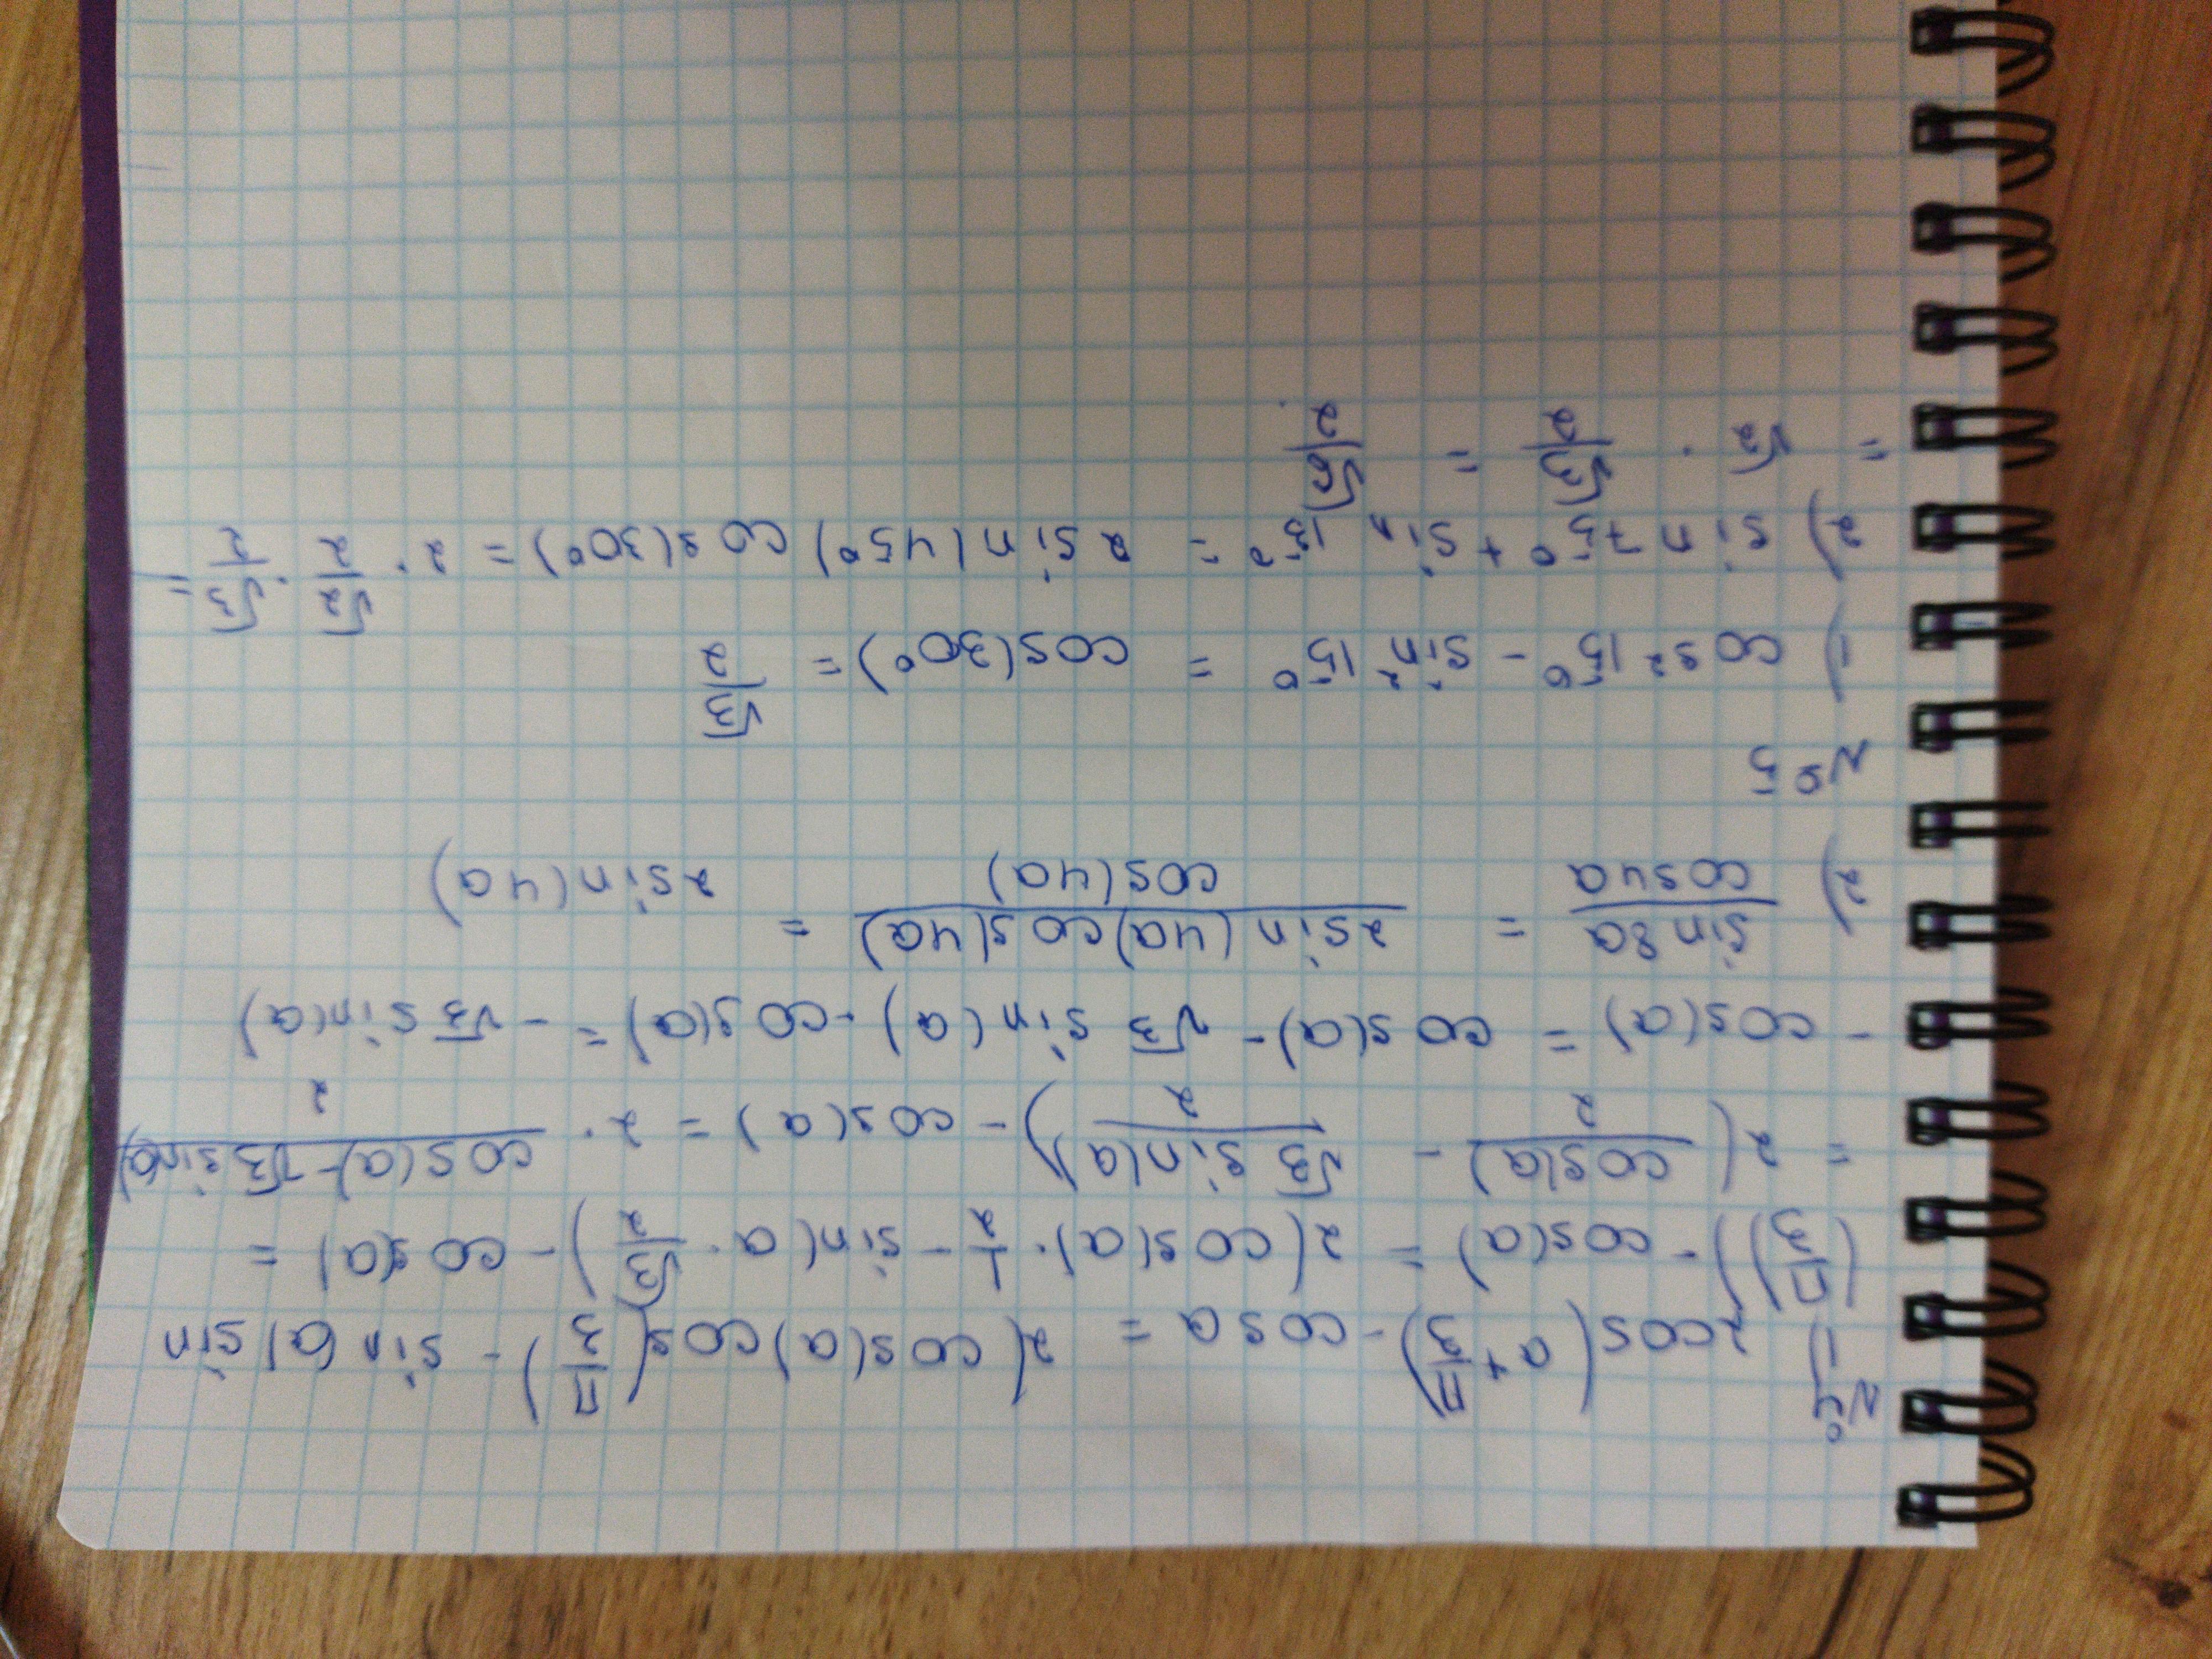 №4
1) 2cos(a+π/3)-cosa = 2(cos(a)cos(π/3)-sin(a)sin
(π/3))-cos(a) = 2(cos(a)·1/2-sin(a·√3/2)-cos(a) =
= 2(cos(a)/2-√3 sin(a)/2)-cos(a) = 2·cos(a)-√3 sin(a)/2
-cos(a) = cos(a)-√3 sin(a)-cos(a) = -√3 sin(a)
2) sin8a/cos4a = 2sin(4a)cos(4a)/cos(4a) = 2sin(4a)
№5
1) cos²15°-sin²15° = cos(30°) = √3/2
2) sin75°+sin15° = 2sin(45°)cos(30°) = 2·√2/2·√3/2 =
= √2·√3/2 = √6/2